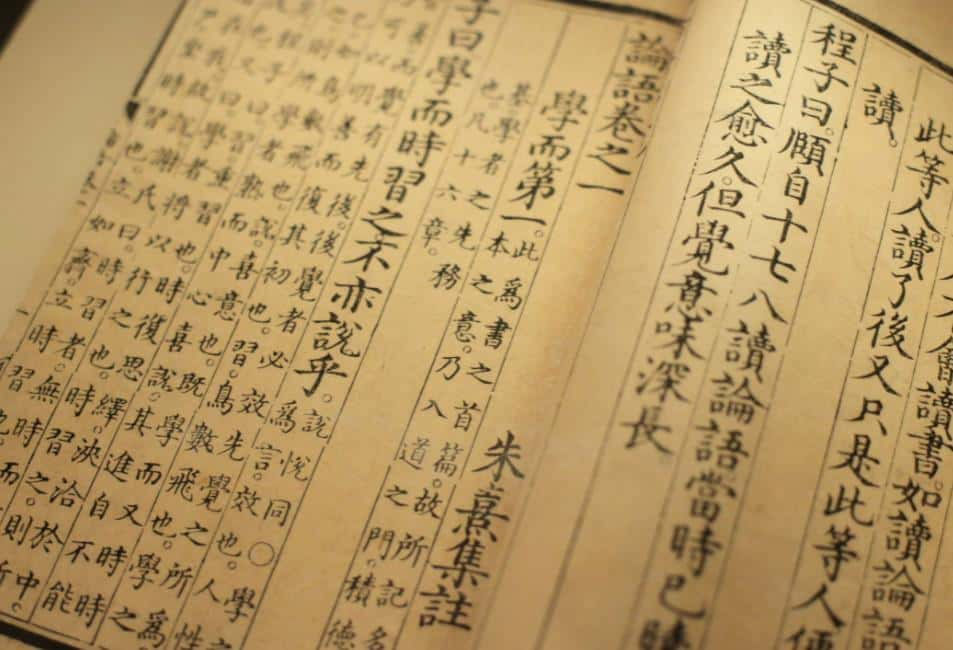 人不會讀書。如讀論語
此等人。讀了後又只是此等人便
讀。
程子曰。頤自十七八讀論語當時已曉
讀之愈久。但覺意味深長。
論語卷之一
朱熹集註
學而第一。此為書之首篇。故所記多
本之意。乃入道之門。積德
基。學者之先務
也。凡十六章。
子曰學而時習之不亦說乎。說悅同○學之
為言。效也。人性
善而覺有先後。後覺者必效先覺之所為
可以明善而復其初也。習。鳥數飛也。學之
如鳥數飛也。說。喜意也。既學而又時時
則所學者熟。而中心喜說。其進自不能
程子曰。習。重習也。時復思繹。浹洽於中。則
也。又曰。學者將以行之也。時習之。則所
在我。故說。謝氏曰。時習者。無時而
時習也。立如齊。立時習也。